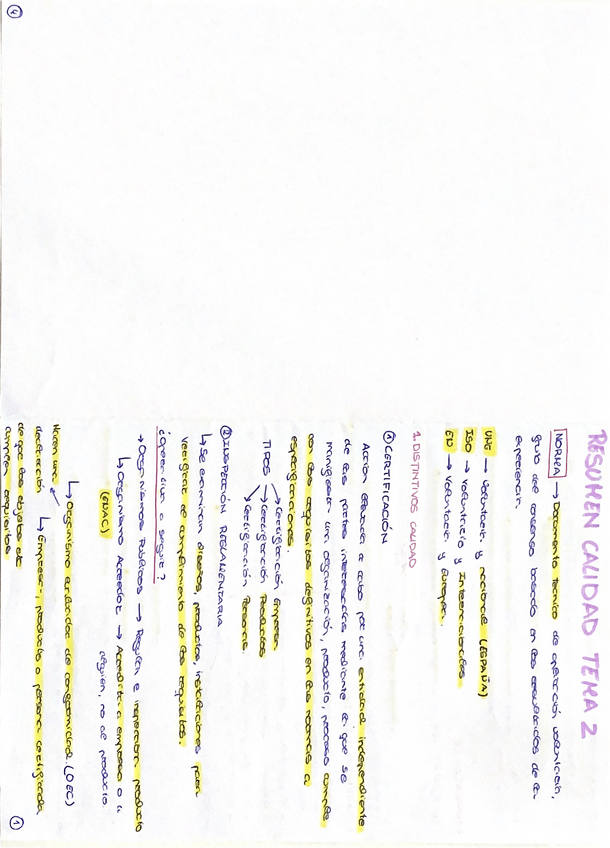 RESUMEN CALIDAD TEMA 2
NORMA → Documento técnico de aplicación voluntaria,
fruto del consenso basado en los resultados de la
experiencia.
UNE → Voluntaria y nacional (ESPAÑA)
ISO → Voluntario y Internacional
EN → Voluntaria y Europea.
1. DISTINTIVOS CALIDAD
① CERTIFICACIÓN
Acción llevada a cabo por una entidad independiente
de las partes interesadas mediante la que se
manifiesta una organización, producto, proceso cumple
con los requisitos definitivos en las normas o
especificaciones.
TIPOS → Certificación Empresa
→ Certificación Productos
→ Certificación Persona.
② INSPECCIÓN REGLAMENTARIA
↳ Se examinan diseños, productos, instalaciones para
verificar el cumplimiento de los requisitos.
¿Operación a seguir?
→ Organismos Públicos → Regulan e inspeccionan producto
↳ Organismo Acreedor → Acredita a empresa o a
(ENAC) alguien, no al producto
↳ Organismo evaluador de conformidad. (OEC)
Hacen una ↳ Empresa, producto o persona certificada
declaración
de que los objetos
cumplen requisitos
4
1